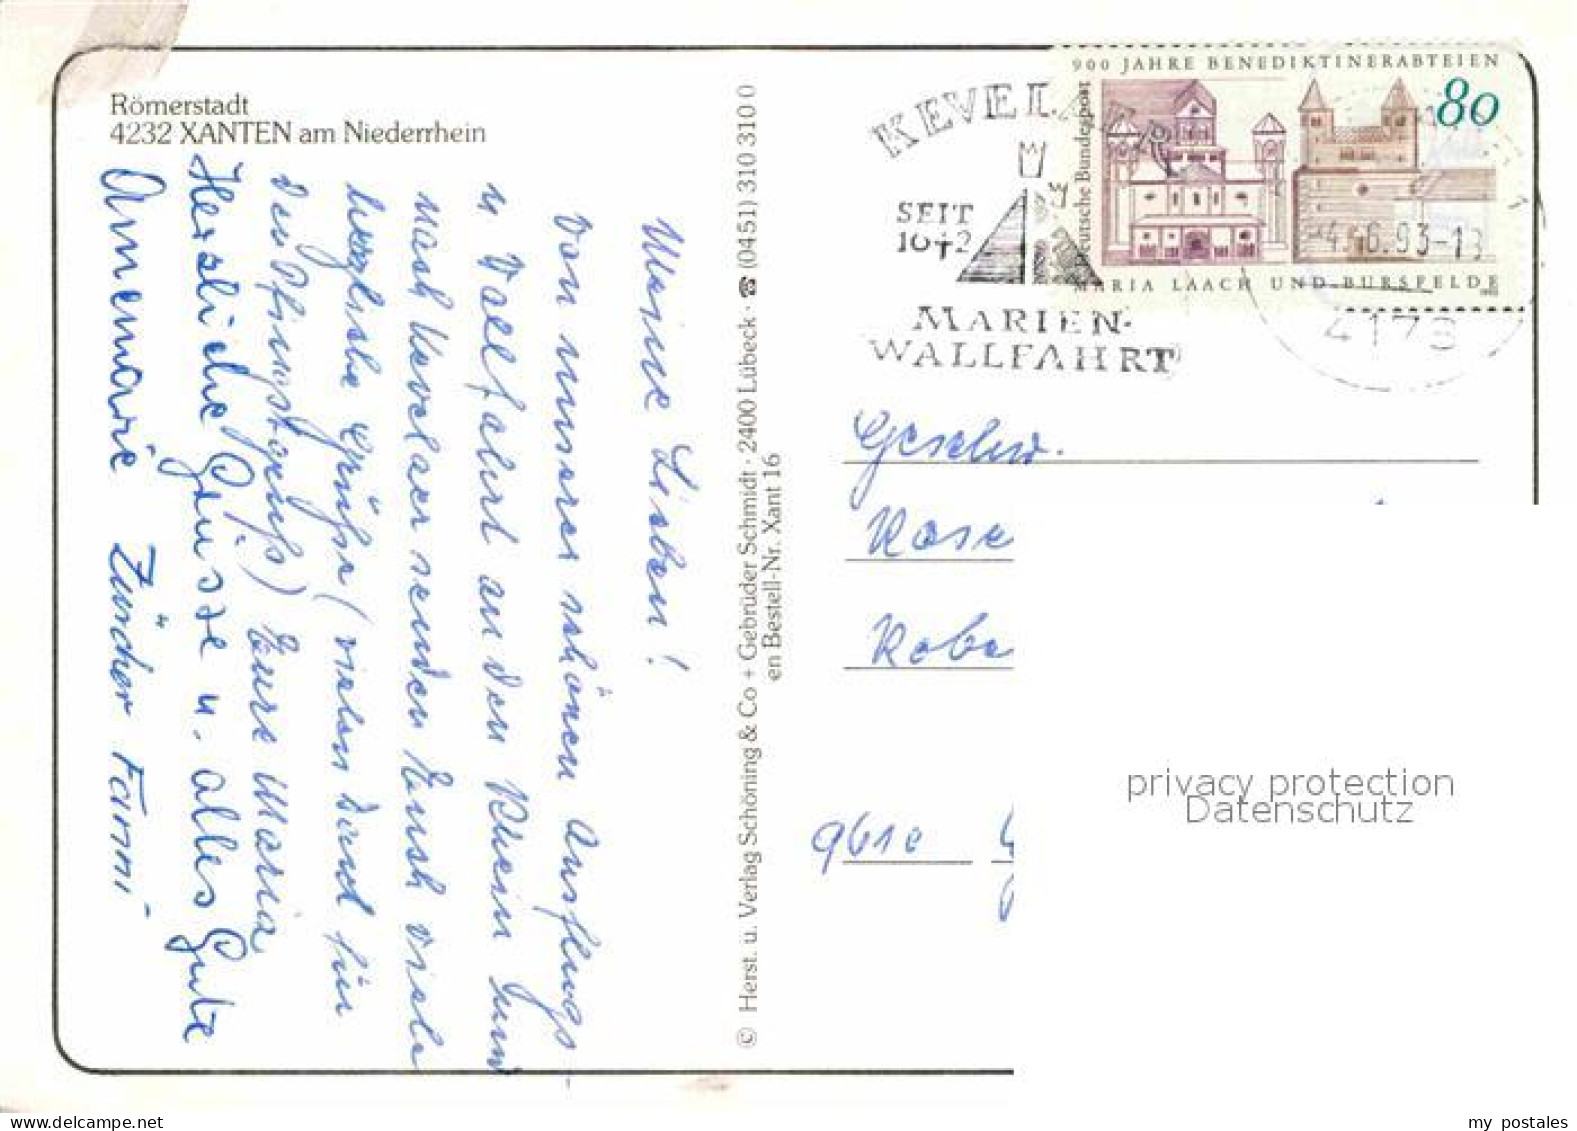 Römerstadt
4232 XANTEN am Niederrhein
Meine Lieben!
Von unserer schönen Ausflugs-
u Wallfahrt an den Rhein und
nach Kevelaer senden Euch viele
herzliche Grüße (vielen Dank für
den Pfingstgruß) Eure Maria
Herzliche Grüsse u. alles Gute
Annemarie Zürcher Fanni
© Herst. u. Verlag Schöning & Co + Gebrüder Schmidt · 2400 Lübeck · ☎ (0451) 310 310 0
en Bestell-Nr. Xant 16
KEVELAER
SEIT
1642
MARIEN-
WALLFAHRT
900 JAHRE BENEDIKTINERABTEIEN
80
Deutsche Bundespost
MARIA LAACH UND BURSFELDE
-4.6.93-18
4178
Geschw.
Rose
Robe
9610
privacy protection
Datenschutz
my postales